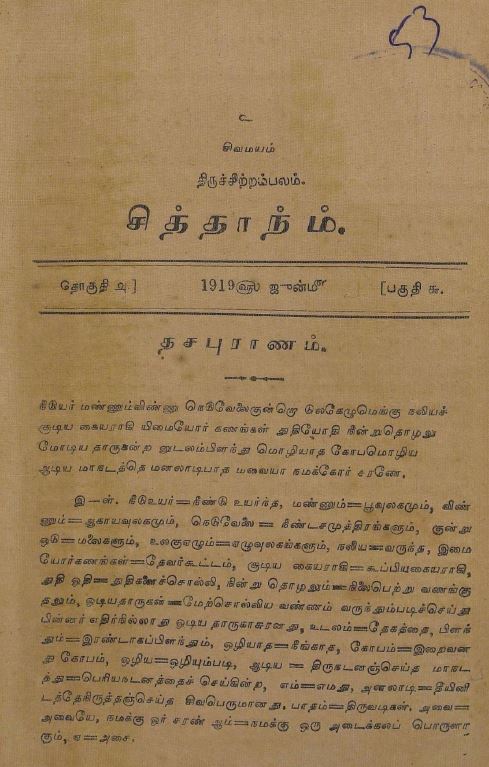 உ
சிவமயம்
திருச்சிற்றம்பலம்.
சித்தாந்தம்.
தொகுதி ௮] 1919௵ ஜுன்௴ [பகுதி ௬.
தசபுராணம்.
நீடுயர் மண்ணும்விண்ணு நெடுவேலைகுன்றொ டுலகேழுமெங்கு நலியச்
சூடிய கையராகி யிமையோர் கணங்கள் துதியோதி நின்றுதொழலு
மோடிய தாருகன்ற னுடலம்பிளந்து மொழியாத கோபமொழிய
ஆடிய மாநடத்தெ மனலாடிபாத மவையா நமக்கோர் சரணே.
இ—ள். நீடுஉயர்=நீண்டு உயர்ந்த, மண்ணும்=பூவுலகமும், விண்
ணும்=ஆகாயவுலகமும், நெடுவேலை=நீண்டசமுத்திரங்களும், குன்று
ஒடு=மலைகளும், உலகுஏழும்=ஏழுவுலகங்களும், நலிய=வருந்த, இமை
யோர்கணங்கள்=தேவர்கூட்டம், சூடிய கையராகி=கூப்பியகையராகி,
துதி ஓதி=துதிகளைச்சொல்லி, நின்று தொழலும்=நிலைபெற்று வணங்கு
தலும், ஓடியதாருகன்=மேற்சொல்லிய வண்ணம் வருந்தும்படிச்செய்து
பின்னர் எதிர்நில்லாது ஓடிய தாருகாசுரனது, உடலம்=தேகத்தை, பிளந்
தும்=இரண்டாகப்பிளந்தும், ஒழியாத=நீங்காத, கோபம்=இறைவன
து கோபம், ஒழிய=ஒழியும்படி, ஆடிய=திருநடனஞ்செய்த மாநட
த்து=பெரியநடனத்தைச் செய்கின்ற, எம்=எமது, அனலாடி=தீயினி
டத்தேநிருத்தஞ்செய்த சிவபெருமானது, பாதம்=திருவடிகள். அவை=
அவையே, நமக்கு ஓர் சரண் ஆம்=நமக்கு ஒரு அடைக்கலப் பொருளா
கும், ஏ=அசை.